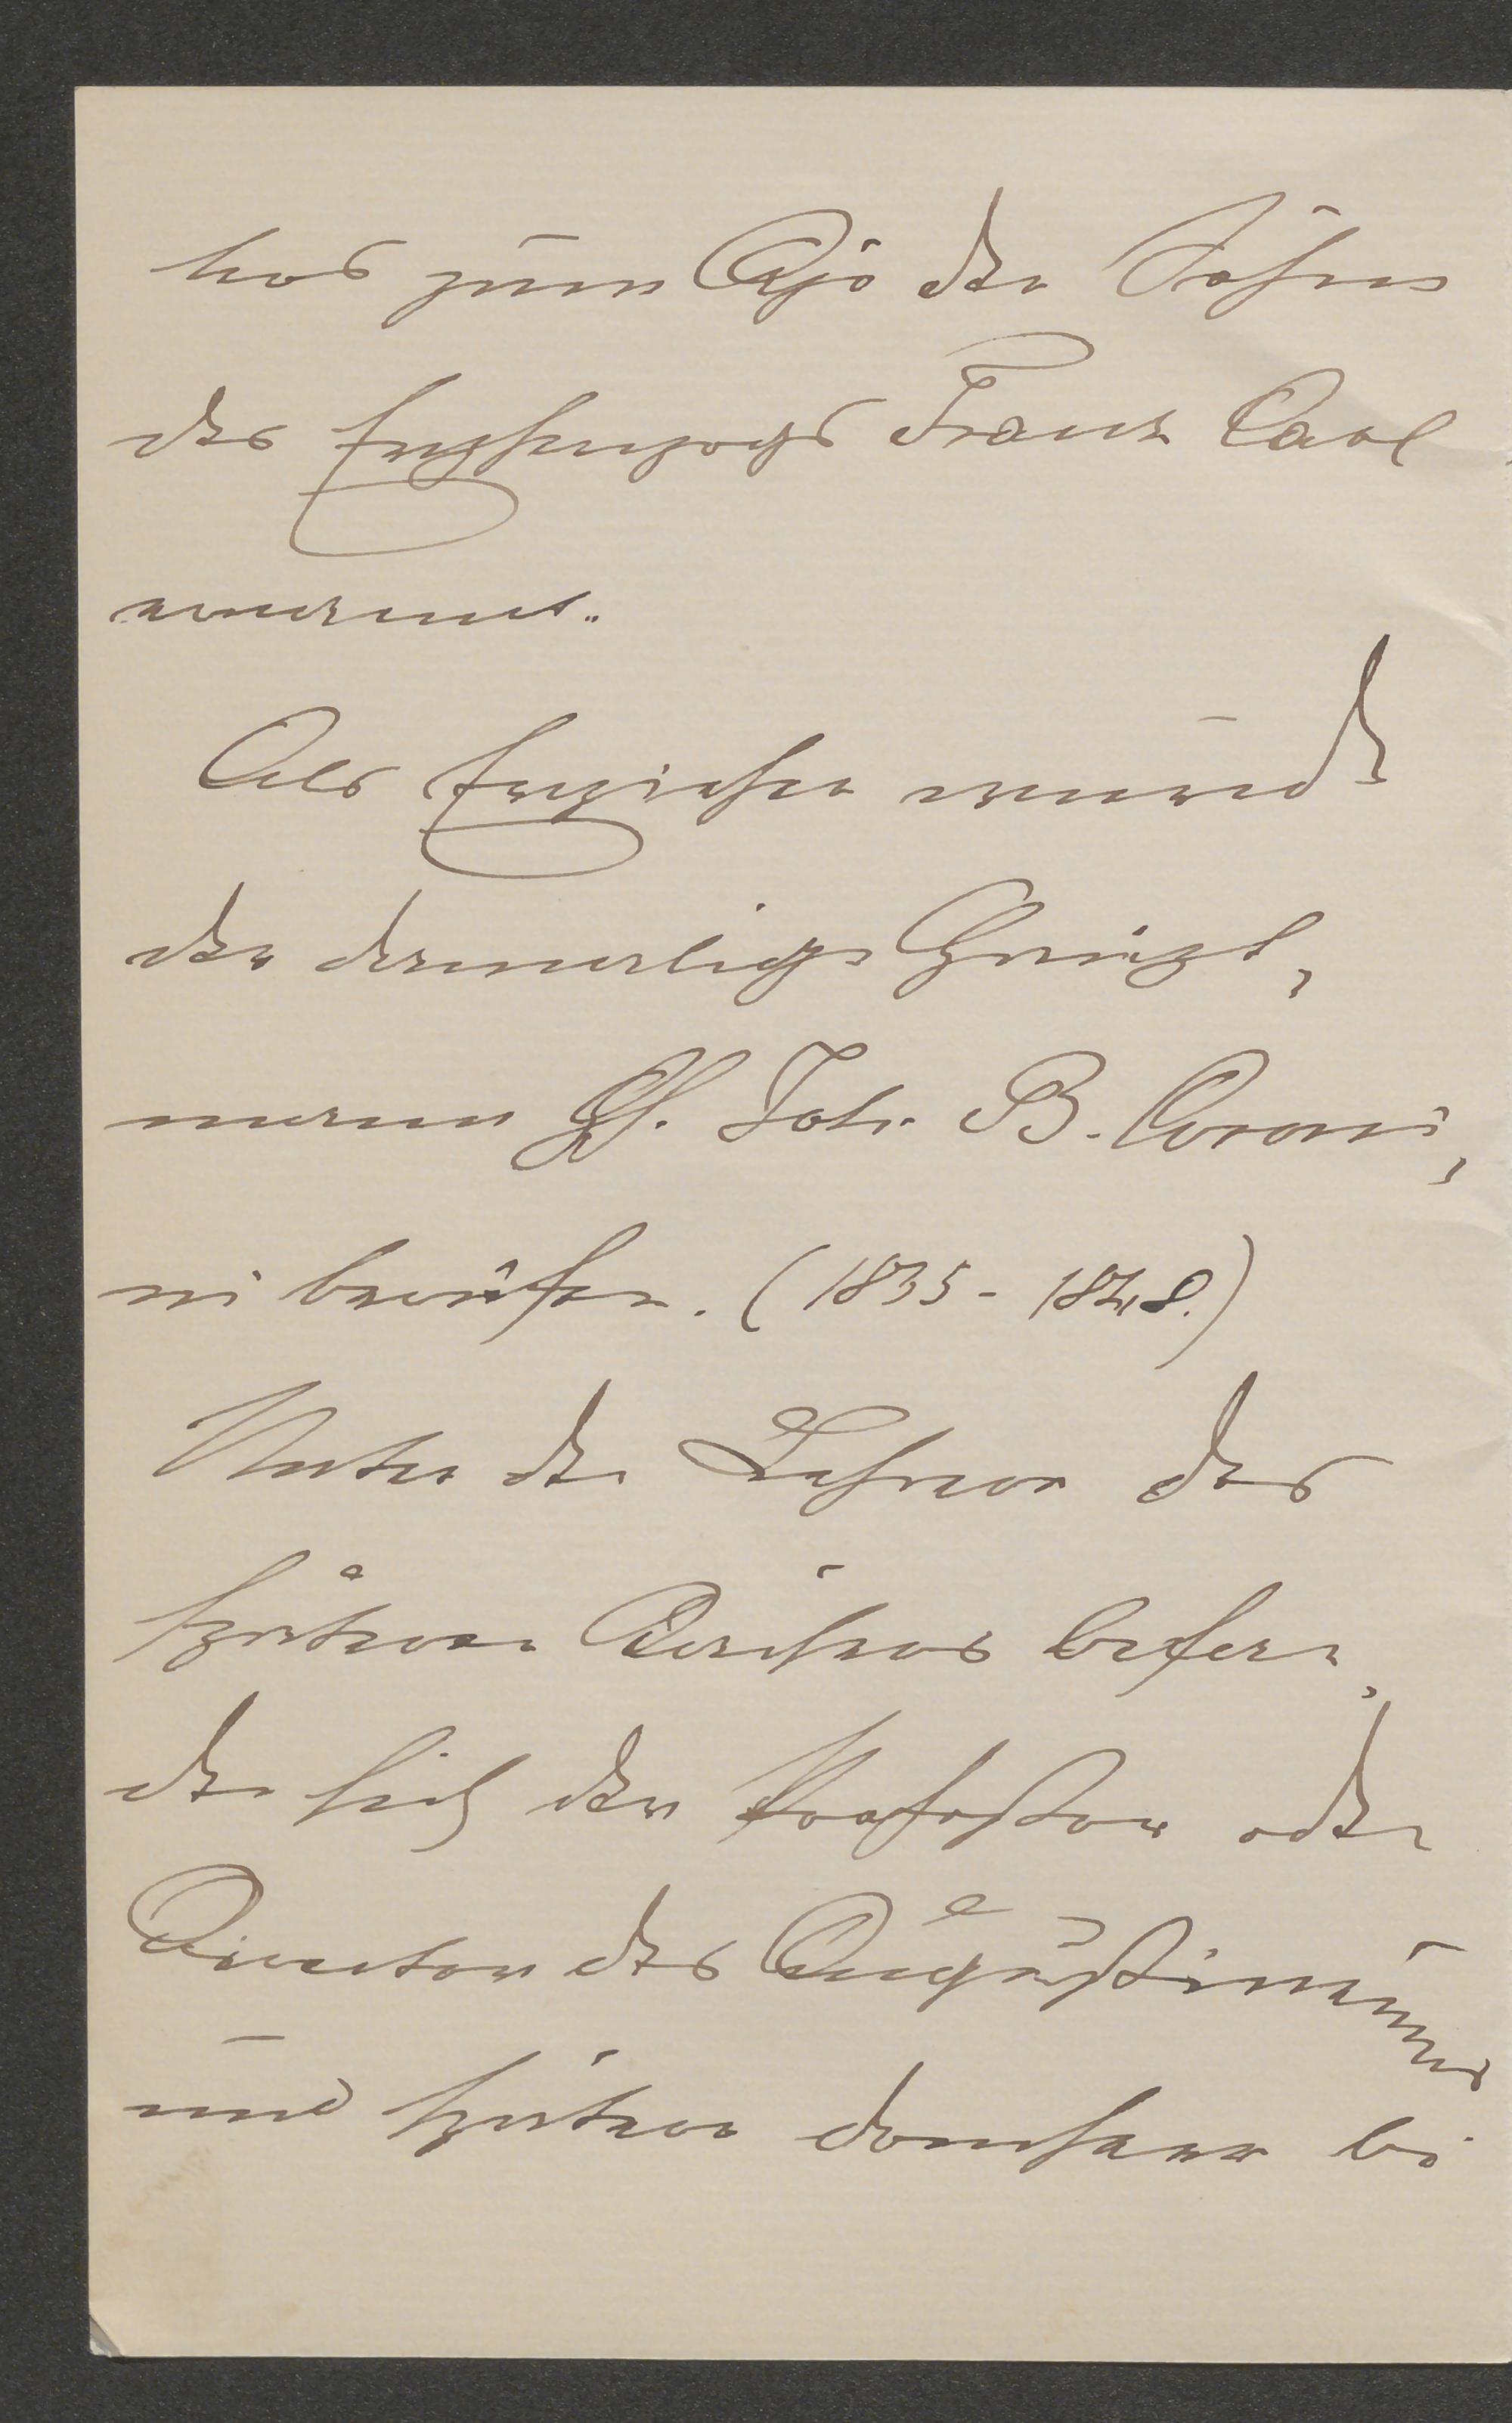 hos zum Ajo der Söhne
des Erzherzogs Franz Carl
ernannt.
Als Erzieher wurde
der damalige Haupt-
mann Gf. Joh. B. Coroni-
ni berufen. (1835 - 1848.)
Unter den Lehrern des
späteren Kaisers befan-
den sich der Professor oder
Director des Augustineums
und spätere Domherr bei